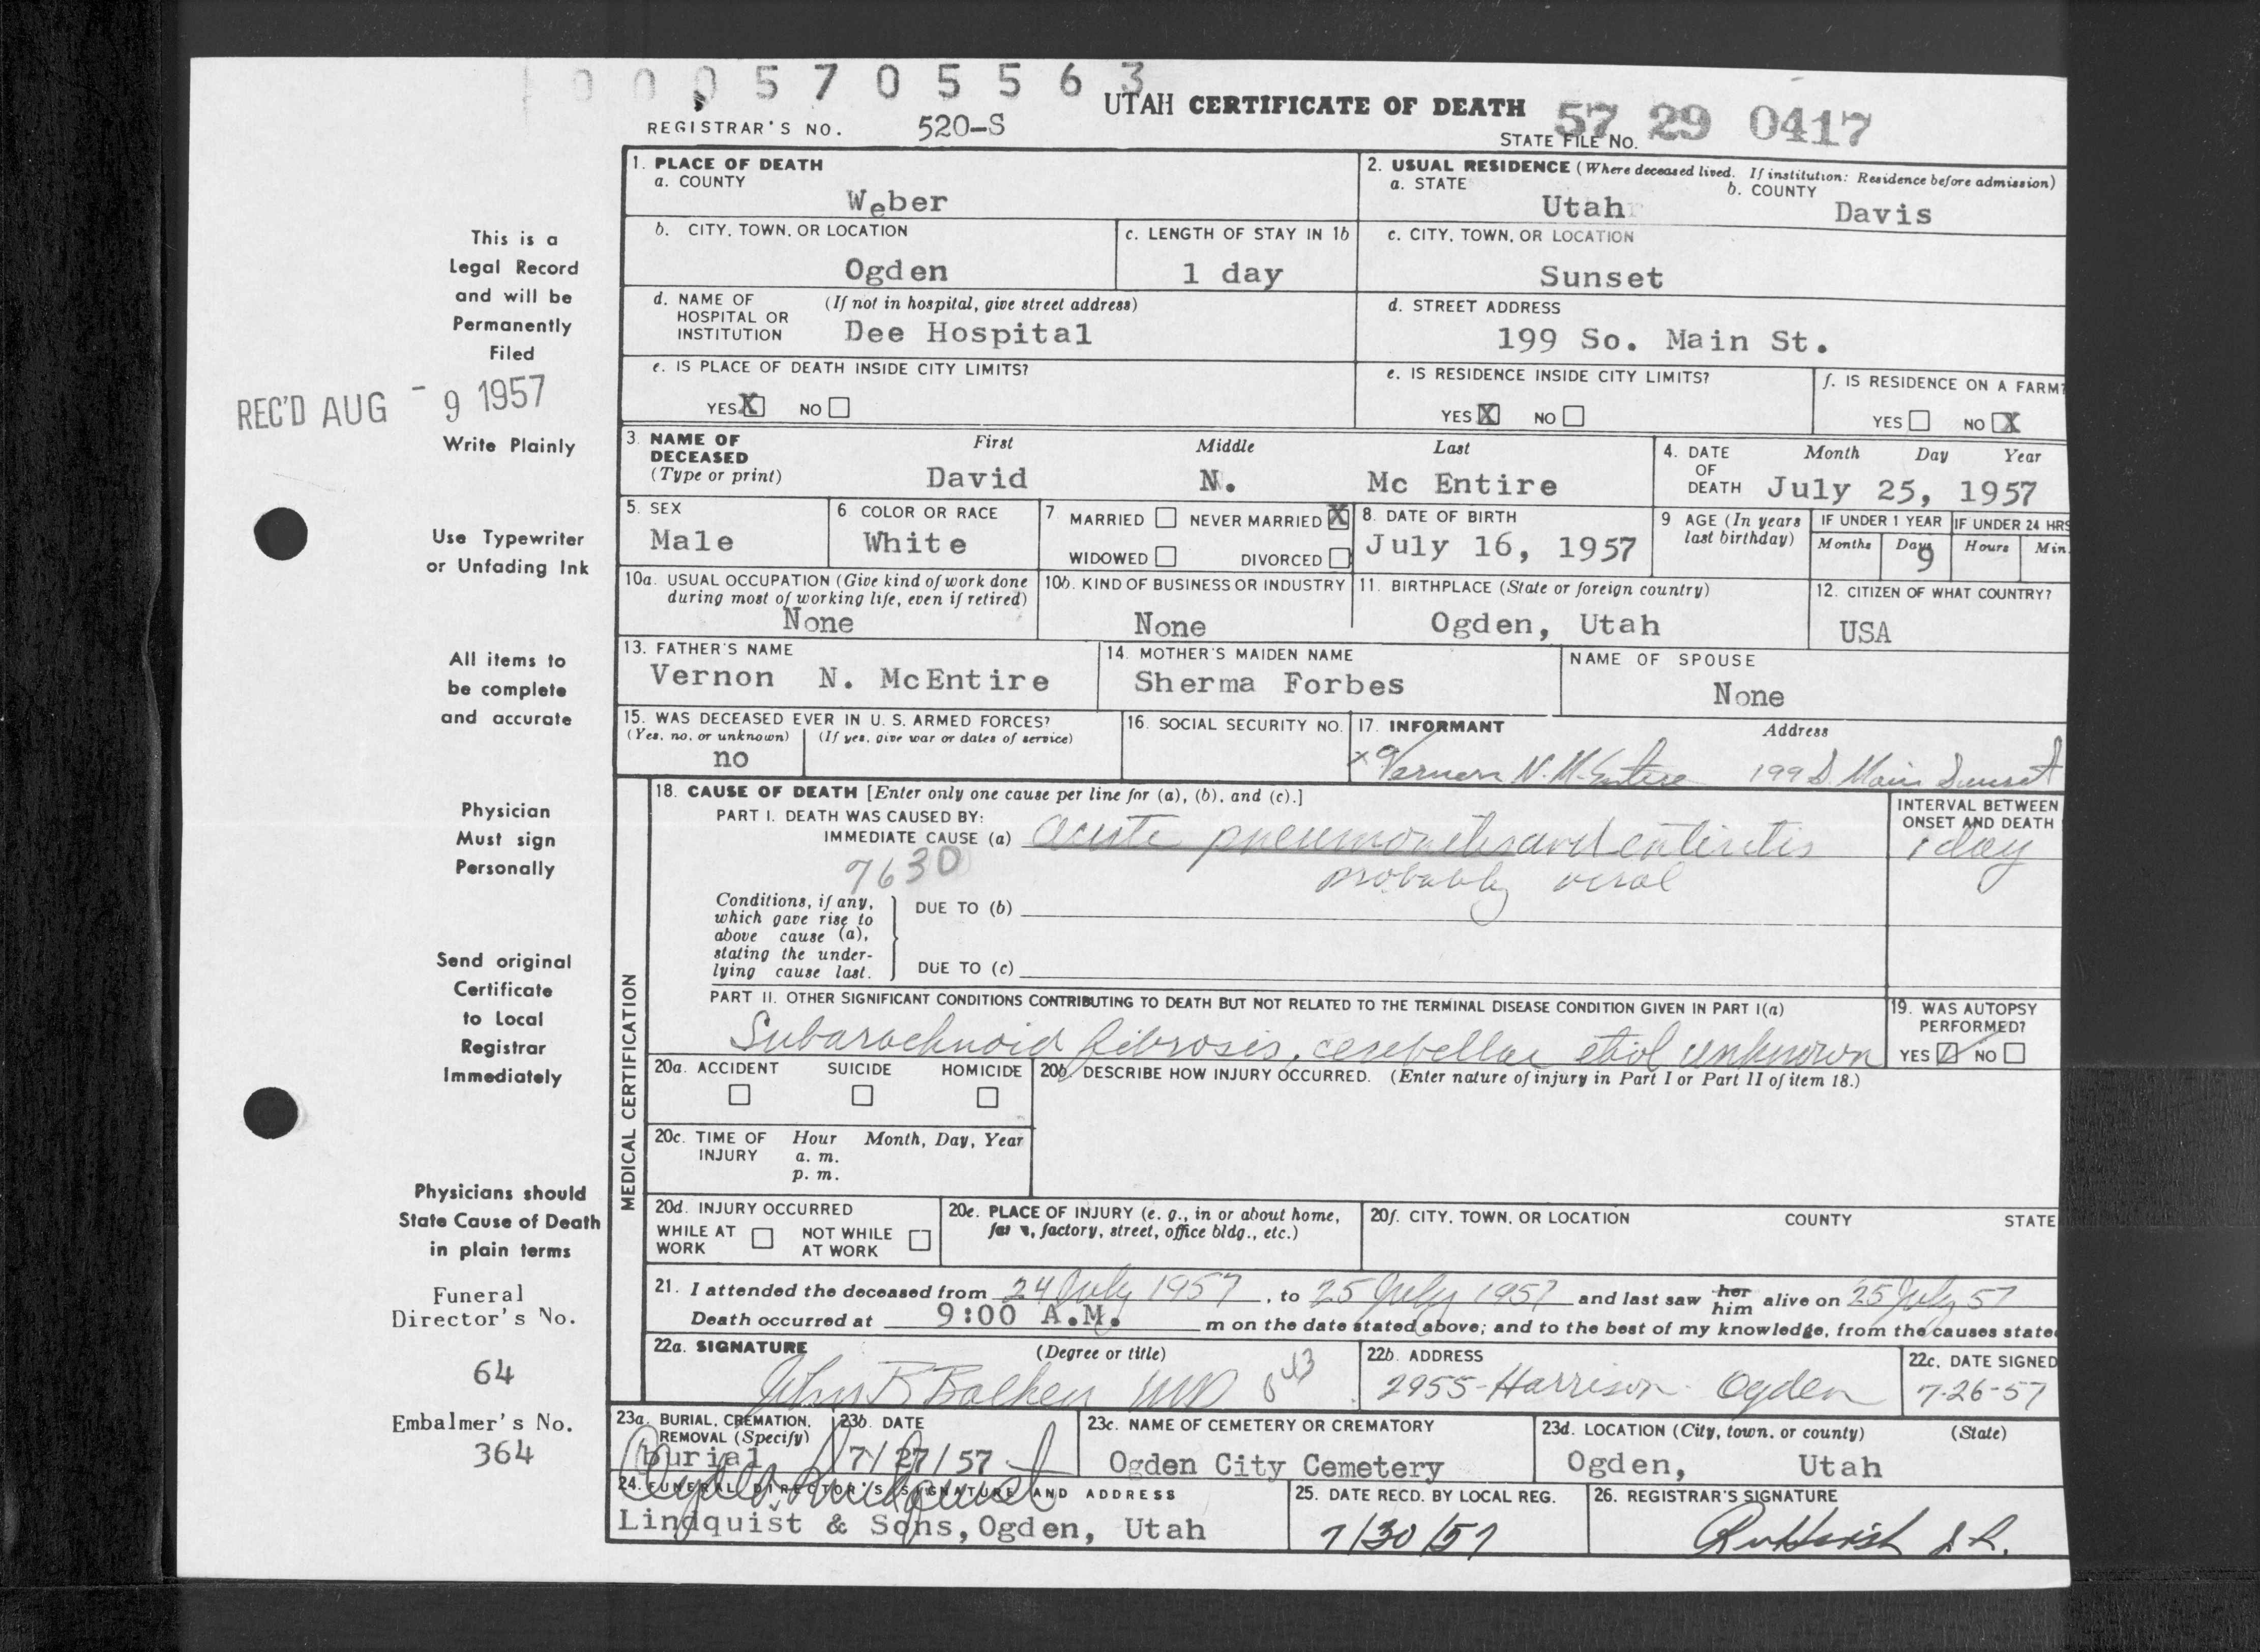 0005705563
UTAH CERTIFICATE OF DEATH
57 29 0417
REGISTRAR'S NO. 520-S
STATE FILE NO.
1. PLACE OF DEATH
a. COUNTY
Weber
2. USUAL RESIDENCE (Where deceased lived. If institution: Residence before admission)
a. STATE
Utah
b. COUNTY
Davis
b. CITY, TOWN, OR LOCATION
Ogden
c. LENGTH OF STAY IN 1b
1 day
c. CITY, TOWN, OR LOCATION
Sunset
d. NAME OF HOSPITAL OR INSTITUTION
(If not in hospital, give street address)
Dee Hospital
d. STREET ADDRESS
199 So. Main St.
e. IS PLACE OF DEATH INSIDE CITY LIMITS?
YES X NO
e. IS RESIDENCE INSIDE CITY LIMITS?
YES X NO
f. IS RESIDENCE ON A FARM?
YES NO X
3. NAME OF DECEASED
(Type or print)
First Middle Last
David N. Mc Entire
4. DATE OF DEATH
Month Day Year
July 25, 1957
5. SEX
Male
6. COLOR OR RACE
White
7 MARRIED NEVER MARRIED X
WIDOWED DIVORCED
8. DATE OF BIRTH
July 16, 1957
9 AGE (In years last birthday)
IF UNDER 1 YEAR
Months Days
9
IF UNDER 24 HRS
Hours Min.
10a. USUAL OCCUPATION (Give kind of work done during most of working life, even if retired)
None
10b. KIND OF BUSINESS OR INDUSTRY
None
11. BIRTHPLACE (State or foreign country)
Ogden, Utah
12. CITIZEN OF WHAT COUNTRY?
USA
13. FATHER'S NAME
Vernon N. McEntire
14. MOTHER'S MAIDEN NAME
Sherma Forbes
NAME OF SPOUSE
None
15. WAS DECEASED EVER IN U. S. ARMED FORCES?
(Yes, no, or unknown) (If yes, give war or dates of service)
no
16. SOCIAL SECURITY NO.
17. INFORMANT Address
x Vernon N. McEntire 199 S. Main Sunset
MEDICAL CERTIFICATION
18. CAUSE OF DEATH [Enter only one cause per line for (a), (b), and (c).]
PART I. DEATH WAS CAUSED BY:
IMMEDIATE CAUSE (a) acute pneumonitis and enteritis
probably viral
7630
INTERVAL BETWEEN ONSET AND DEATH
1 day
Conditions, if any, which gave rise to above cause (a), stating the underlying cause last.
DUE TO (b)
DUE TO (c)
PART II. OTHER SIGNIFICANT CONDITIONS CONTRIBUTING TO DEATH BUT NOT RELATED TO THE TERMINAL DISEASE CONDITION GIVEN IN PART I(a)
Subarachnoid fibrosis, cerebellar etiol unknown
19. WAS AUTOPSY PERFORMED?
YES NO
20a. ACCIDENT SUICIDE HOMICIDE
20b. DESCRIBE HOW INJURY OCCURRED. (Enter nature of injury in Part I or Part II of item 18.)
20c. TIME OF INJURY
Hour Month, Day, Year
a. m.
p. m.
20d. INJURY OCCURRED
WHILE AT WORK NOT WHILE AT WORK
20e. PLACE OF INJURY (e. g., in or about home, farm, factory, street, office bldg., etc.)
20f. CITY, TOWN, OR LOCATION COUNTY STATE
21. I attended the deceased from 24 July 1957, to 25 July 1957 and last saw her him alive on 25 July 57
Death occurred at 9:00 A.M. m on the date stated above; and to the best of my knowledge, from the causes state
22a. SIGNATURE (Degree or title)
John B MD
22b. ADDRESS
2955-Harrison Ogden
22c. DATE SIGNED
7-26-57
23a. BURIAL, CREMATION, REMOVAL (Specify)
burial
23b. DATE
7/27/57
23c. NAME OF CEMETERY OR CREMATORY
Ogden City Cemetery
23d. LOCATION (City, town, or county) (State)
Ogden, Utah
24. FUNERAL DIRECTOR'S SIGNATURE AND ADDRESS
Lindquist & Sons, Ogden, Utah
25. DATE RECD. BY LOCAL REG.
7/30/57
26. REGISTRAR'S SIGNATURE
This is a
Legal Record
and will be
Permanently
Filed
REC'D AUG - 9 1957
Write Plainly
Use Typewriter
or Unfading Ink
All items to
be complete
and accurate
Physician
Must sign
Personally
Send original
Certificate
to Local
Registrar
Immediately
Physicians should
State Cause of Death
in plain terms
Funeral
Director's No.
64
Embalmer's No.
364